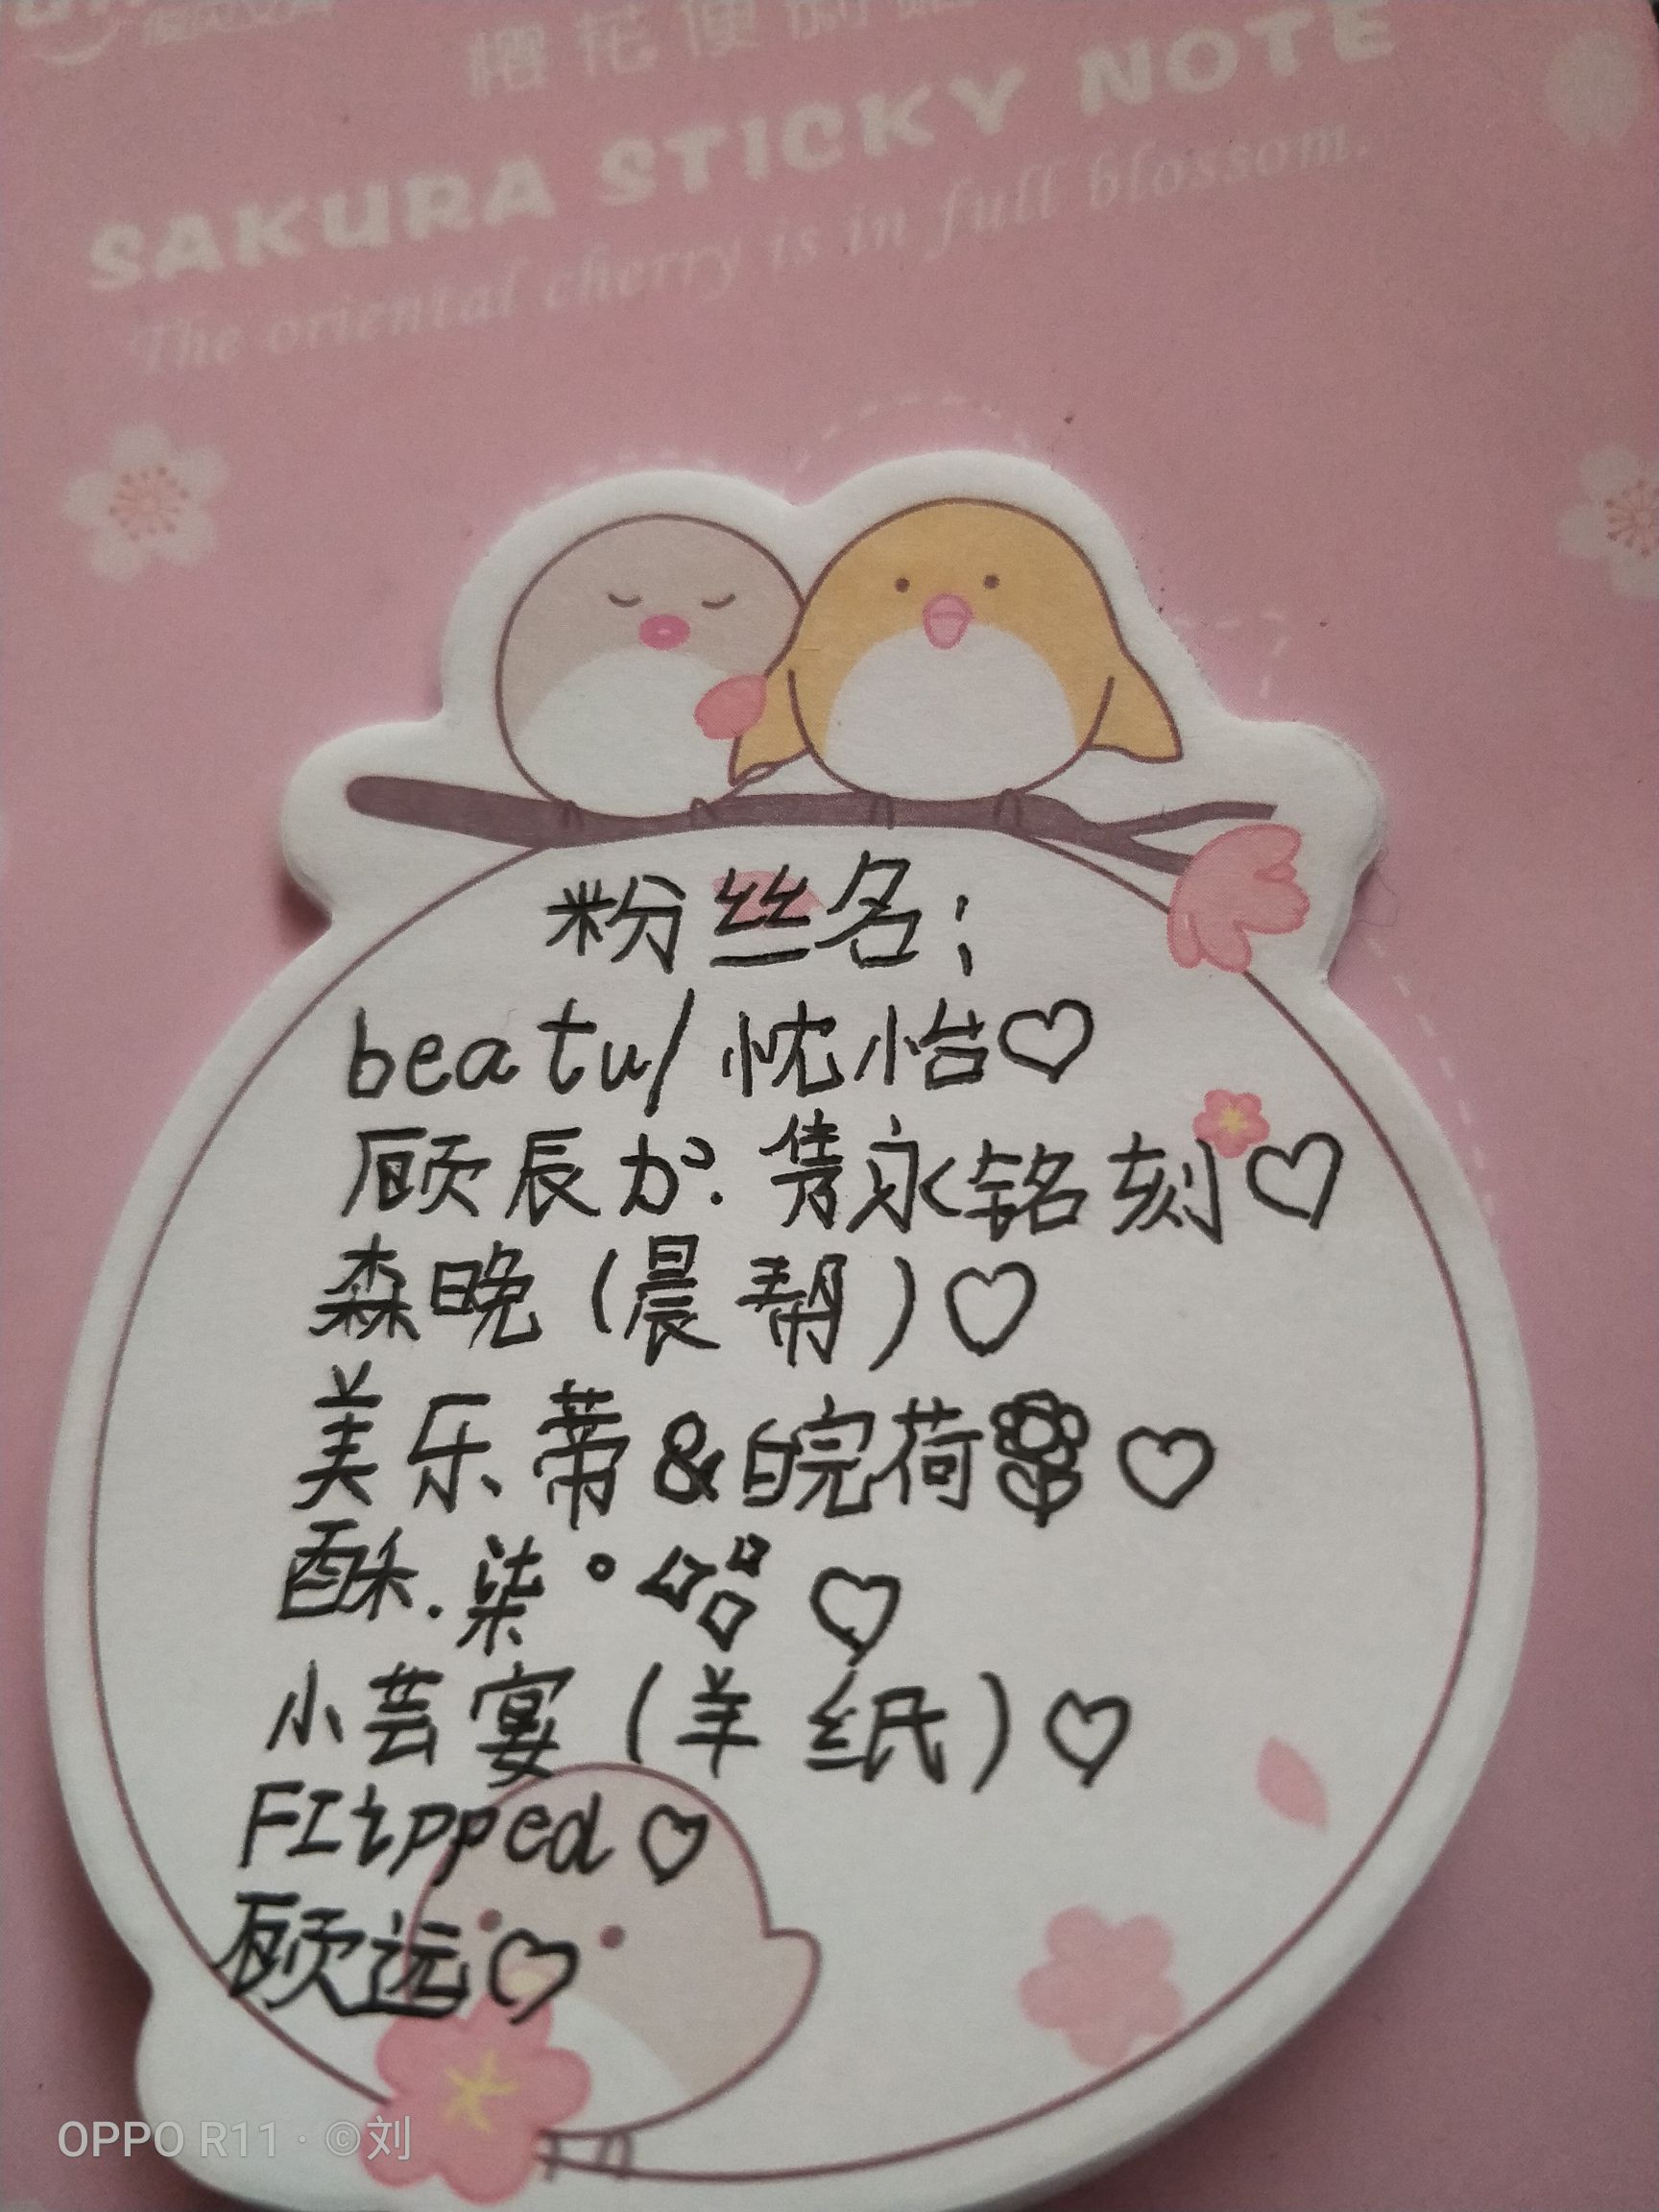 樱花便
SAKURA STICKY NOTE
The oriental cherry is in full blossom.
粉丝名:
beatu/忱怡♡
顾辰か. 隽永铭刻♡
森晚(晨帮)♡
美乐蒂&皖荷♡
酥.柒°♡
小芸宴(羊纸)♡
FItpped♡
顾远♡
OPPO R11 · ©刘